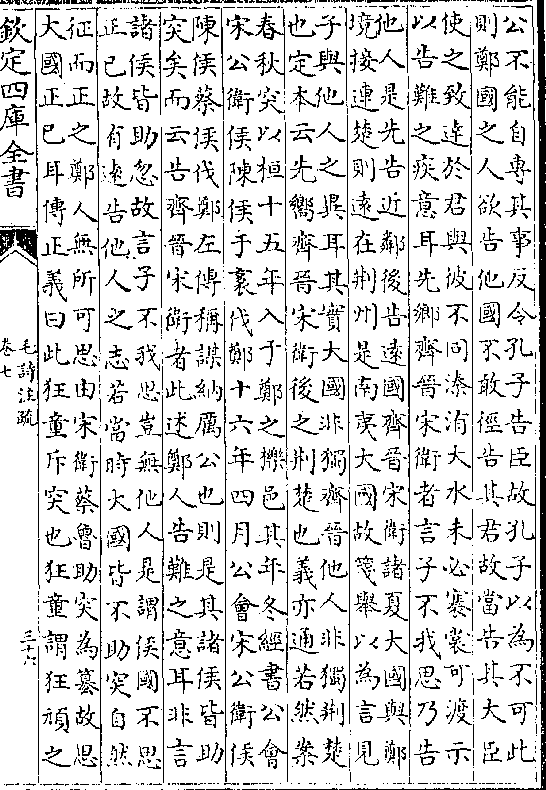 公不能自專其事反令孔子告臣故孔子以為不可此
則鄭國之人欲告他國不敢徑告其君故當告其大臣
使之致達於君與彼不同溱洧大水未必褰裳可渡示
以告難之疾意耳先鄉齊晉宋衛者言子不我思乃告
他人是先告近鄰後告遠國齊晉宋衛諸夏大國與鄭
境接連楚則遠在荆州是南夷大國故箋舉以為言見
子與他人之異耳其實大國非獨齊晉他人非獨荆楚
也定本云先嚮齊晉宋衛後之荆楚也義亦通若然案
春秋突以桓十五年入于鄭之櫟邑其年冬經書公會
宋公衛侯陳侯于袲伐鄭十六年四月公會宋公衛侯
陳侯蔡侯伐鄭左傳稱謀納厲公也則是其諸侯皆助
突矣而云告齊晉宋衛者此述鄭人告難之意耳非言
諸侯皆助忽故言子不我思豈無他人是謂侯國不思
正已故有遠告他人之志若當時大國皆不助突自然
征而正之鄭人無所可思由宋衛蔡魯助突為篡故思
大國正已耳傳正義曰此狂童斥突也狂童謂狂頑之
欽定四庫全書
毛詩注疏
卷七
三十六